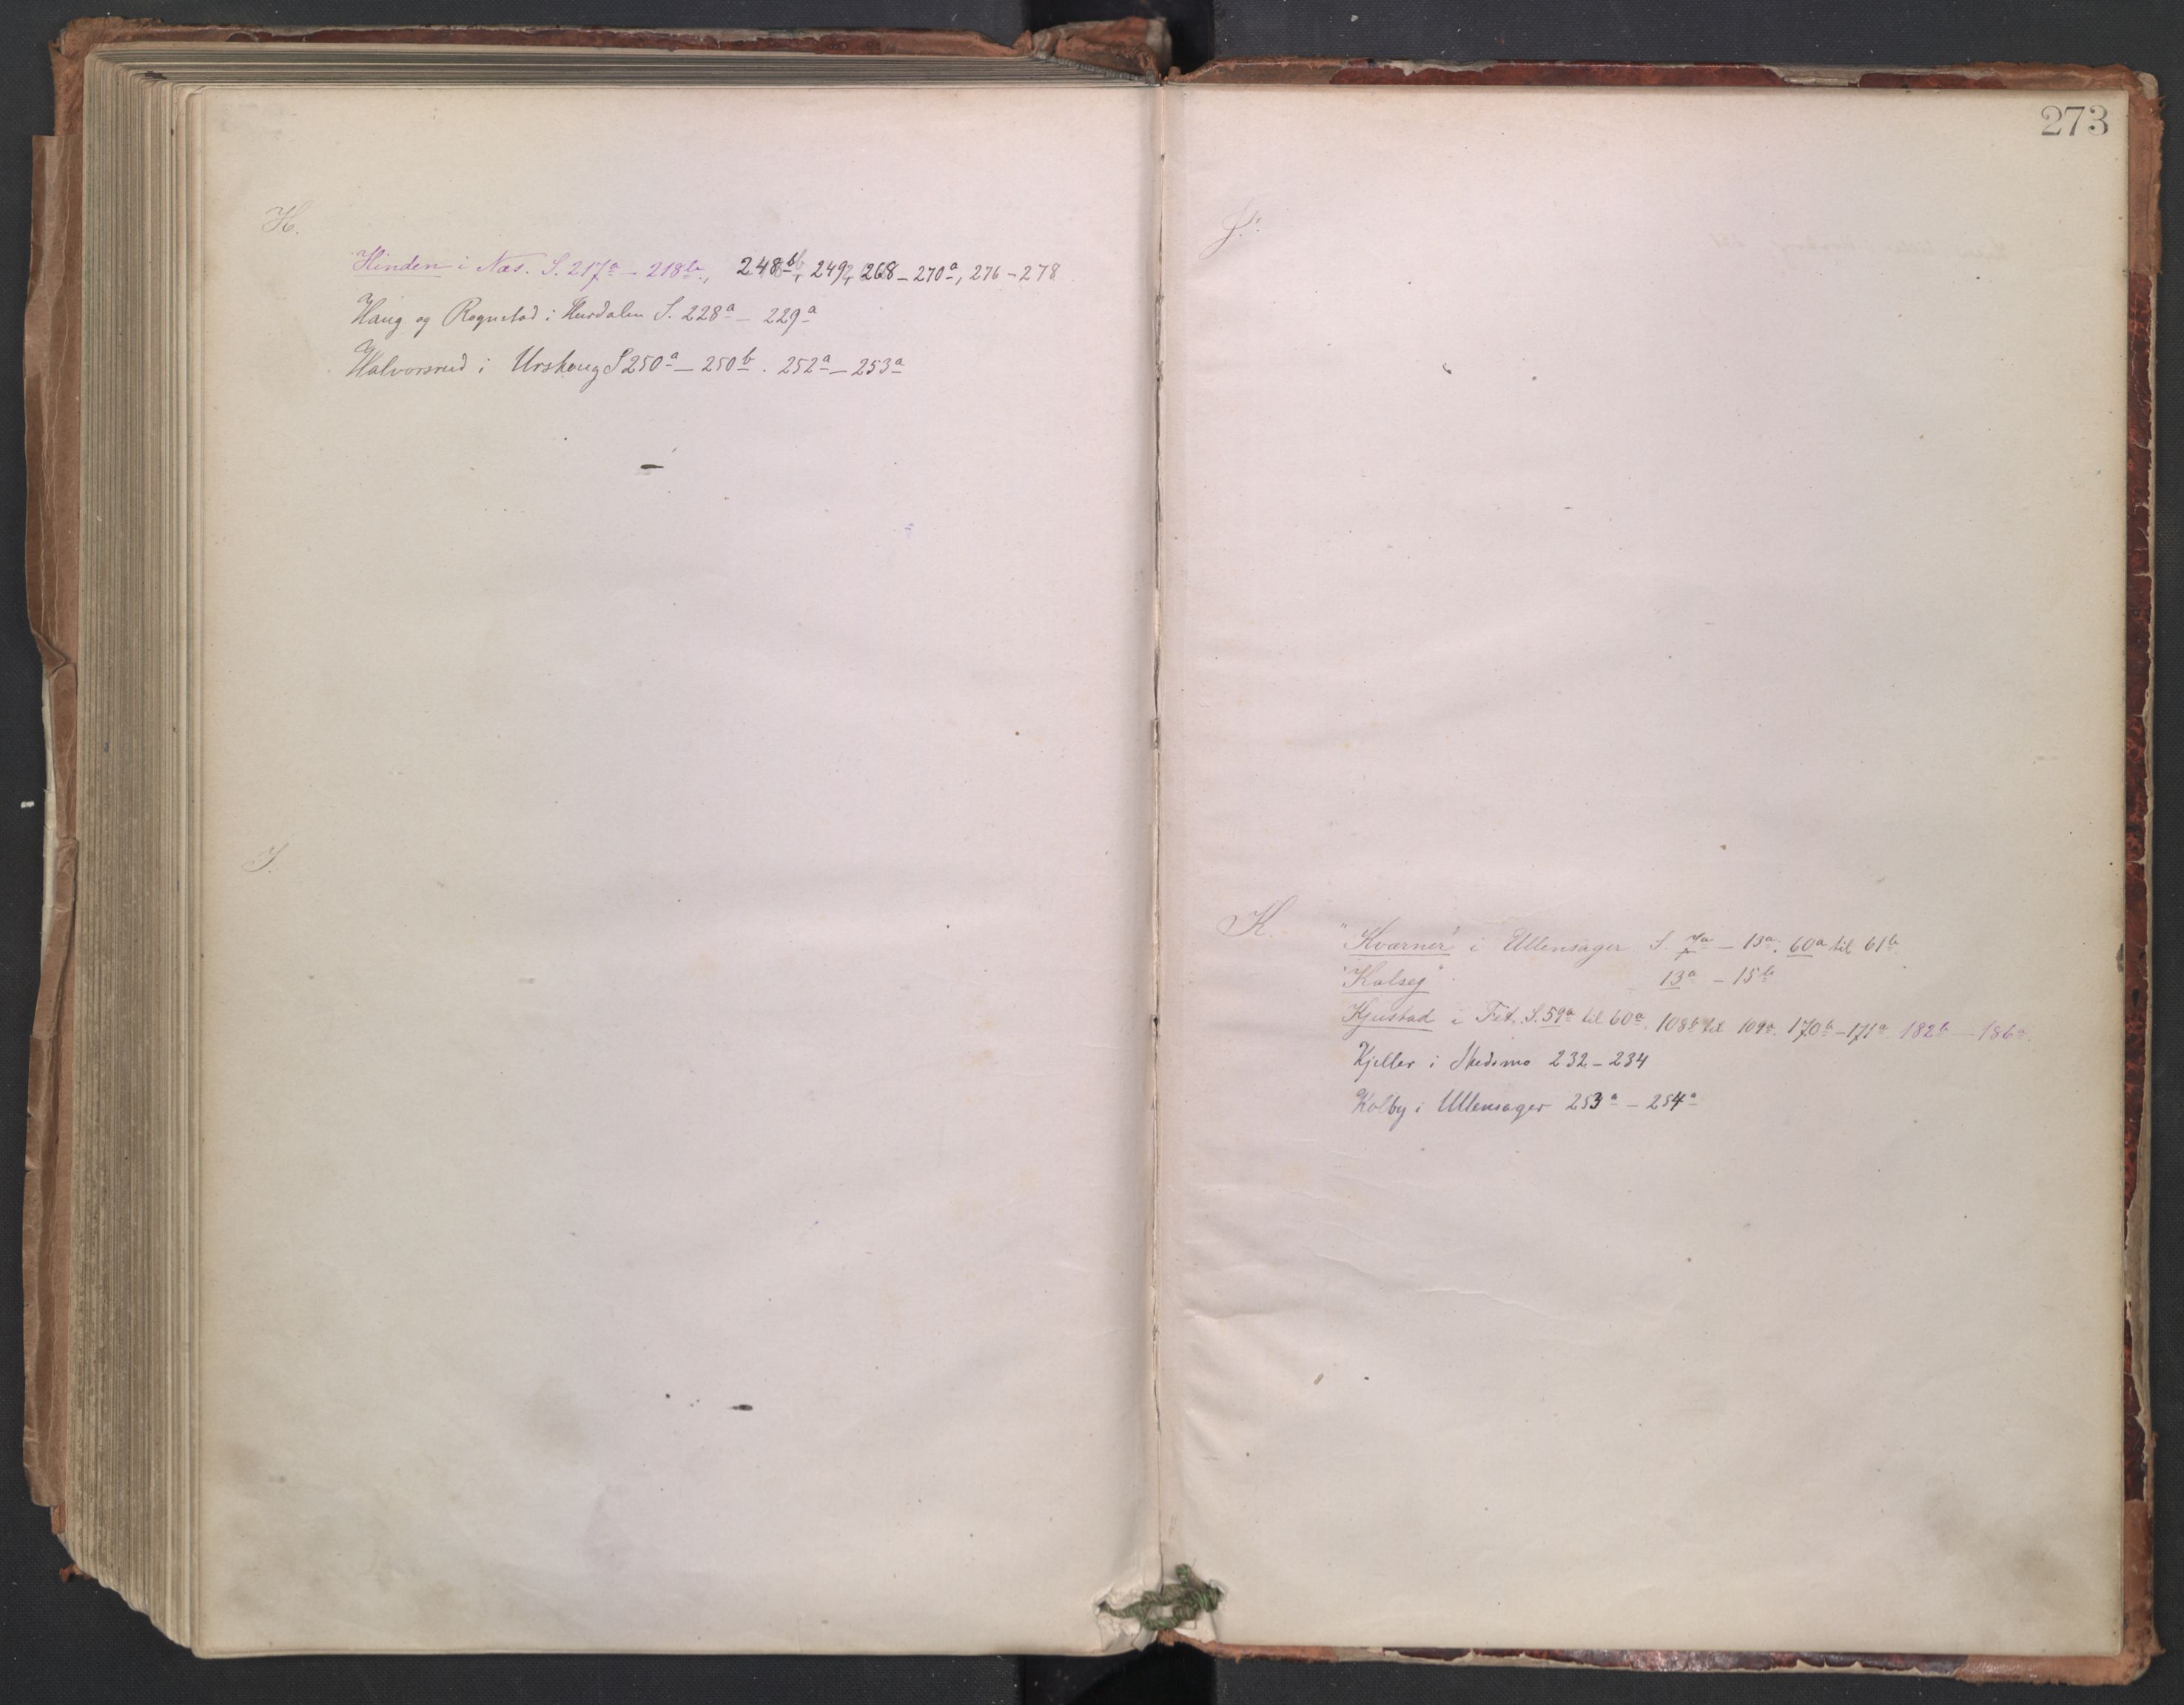 H.
Hinden i Næs. S. 217a – 218b, 248b, 249, 268 – 270a, 276 – 278
Haug og Rognstad i Hurdalen S. 228a – 229a
Halvorsrud i Urskoug S 250a – 250b. 252a – 253a
I.
273
J.
K.
"Kværner" i Ullensager S. 7a – 13a. 60a til 61b
"Kalseg" 13a – 15b
Kjustad i Fet. S. 59a til 60a. 108b til 109a. 170b – 171a. 182b – 186a.
Kjeller i Skedsmo 232 – 234
Kolby i Ullensager 253a – 254a